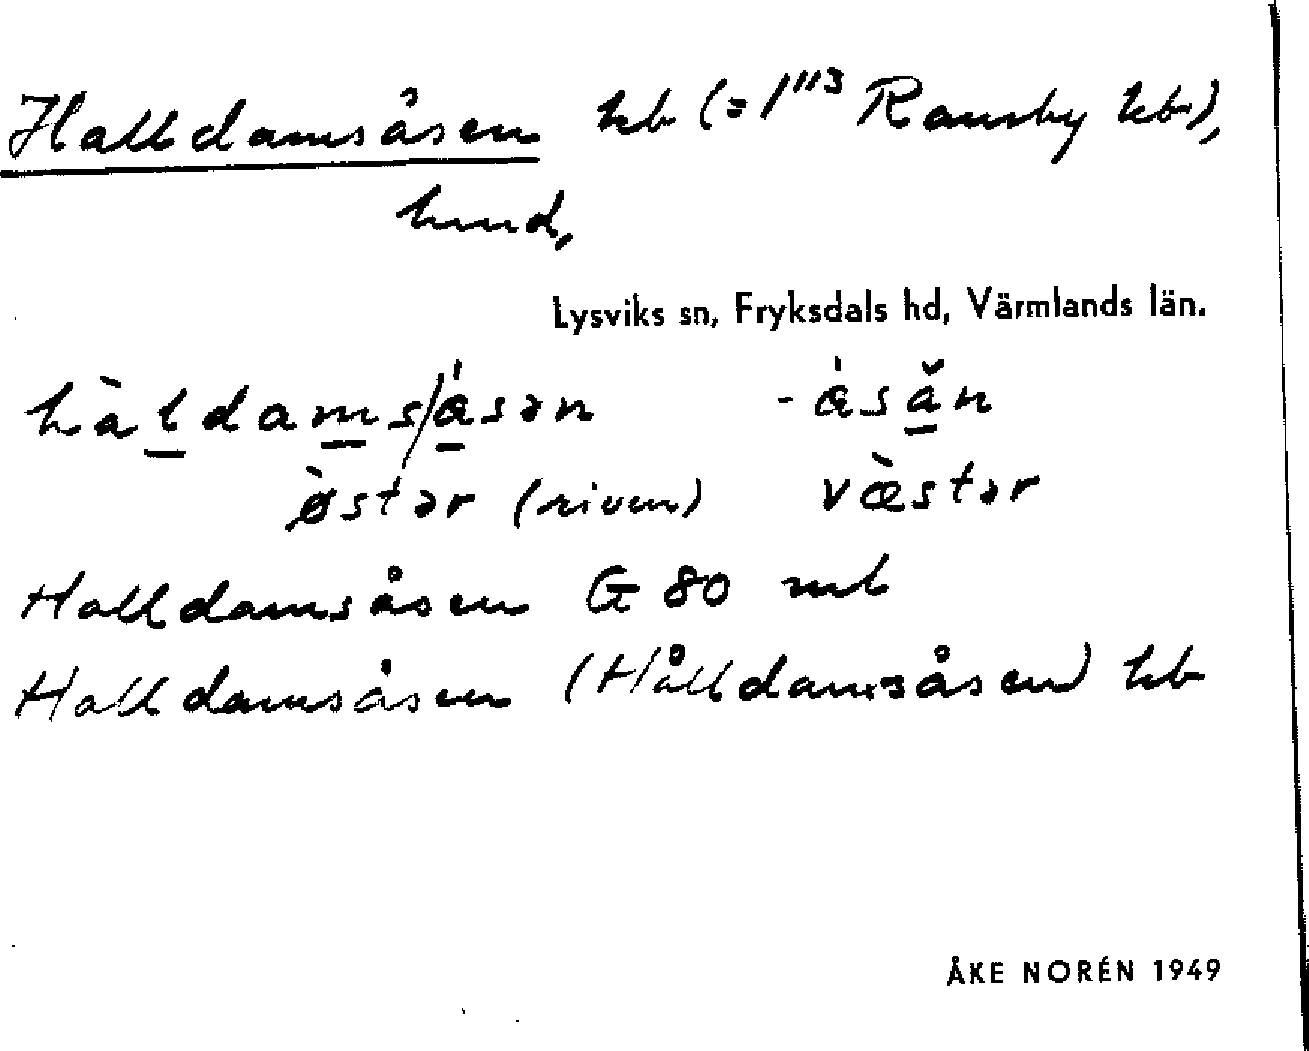 Halldamsåsen kb (= 1¹¹³ Ransby kb),
hmd,
Lysviks sn, Fryksdals hd, Värmlands län.
hàldams/åsən -åsăn
østər (riven) væstər
Halldamsåsen G 80 mb
Halldamsåsen (Hålldamsåsen) kb
ÅKE NORÉN 1949